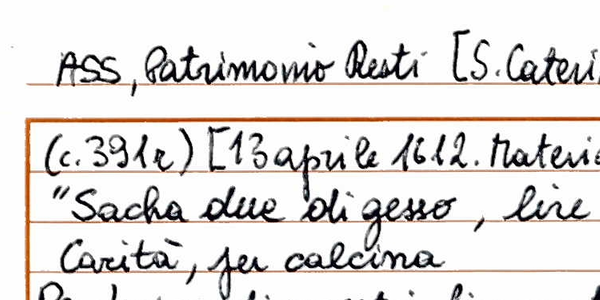 ASS, Patrimonio Resti [S. Cateri
(c. 391r) [13 aprile 1612. Materia
"Sacha due di gesso, lire
Carità, per calcina